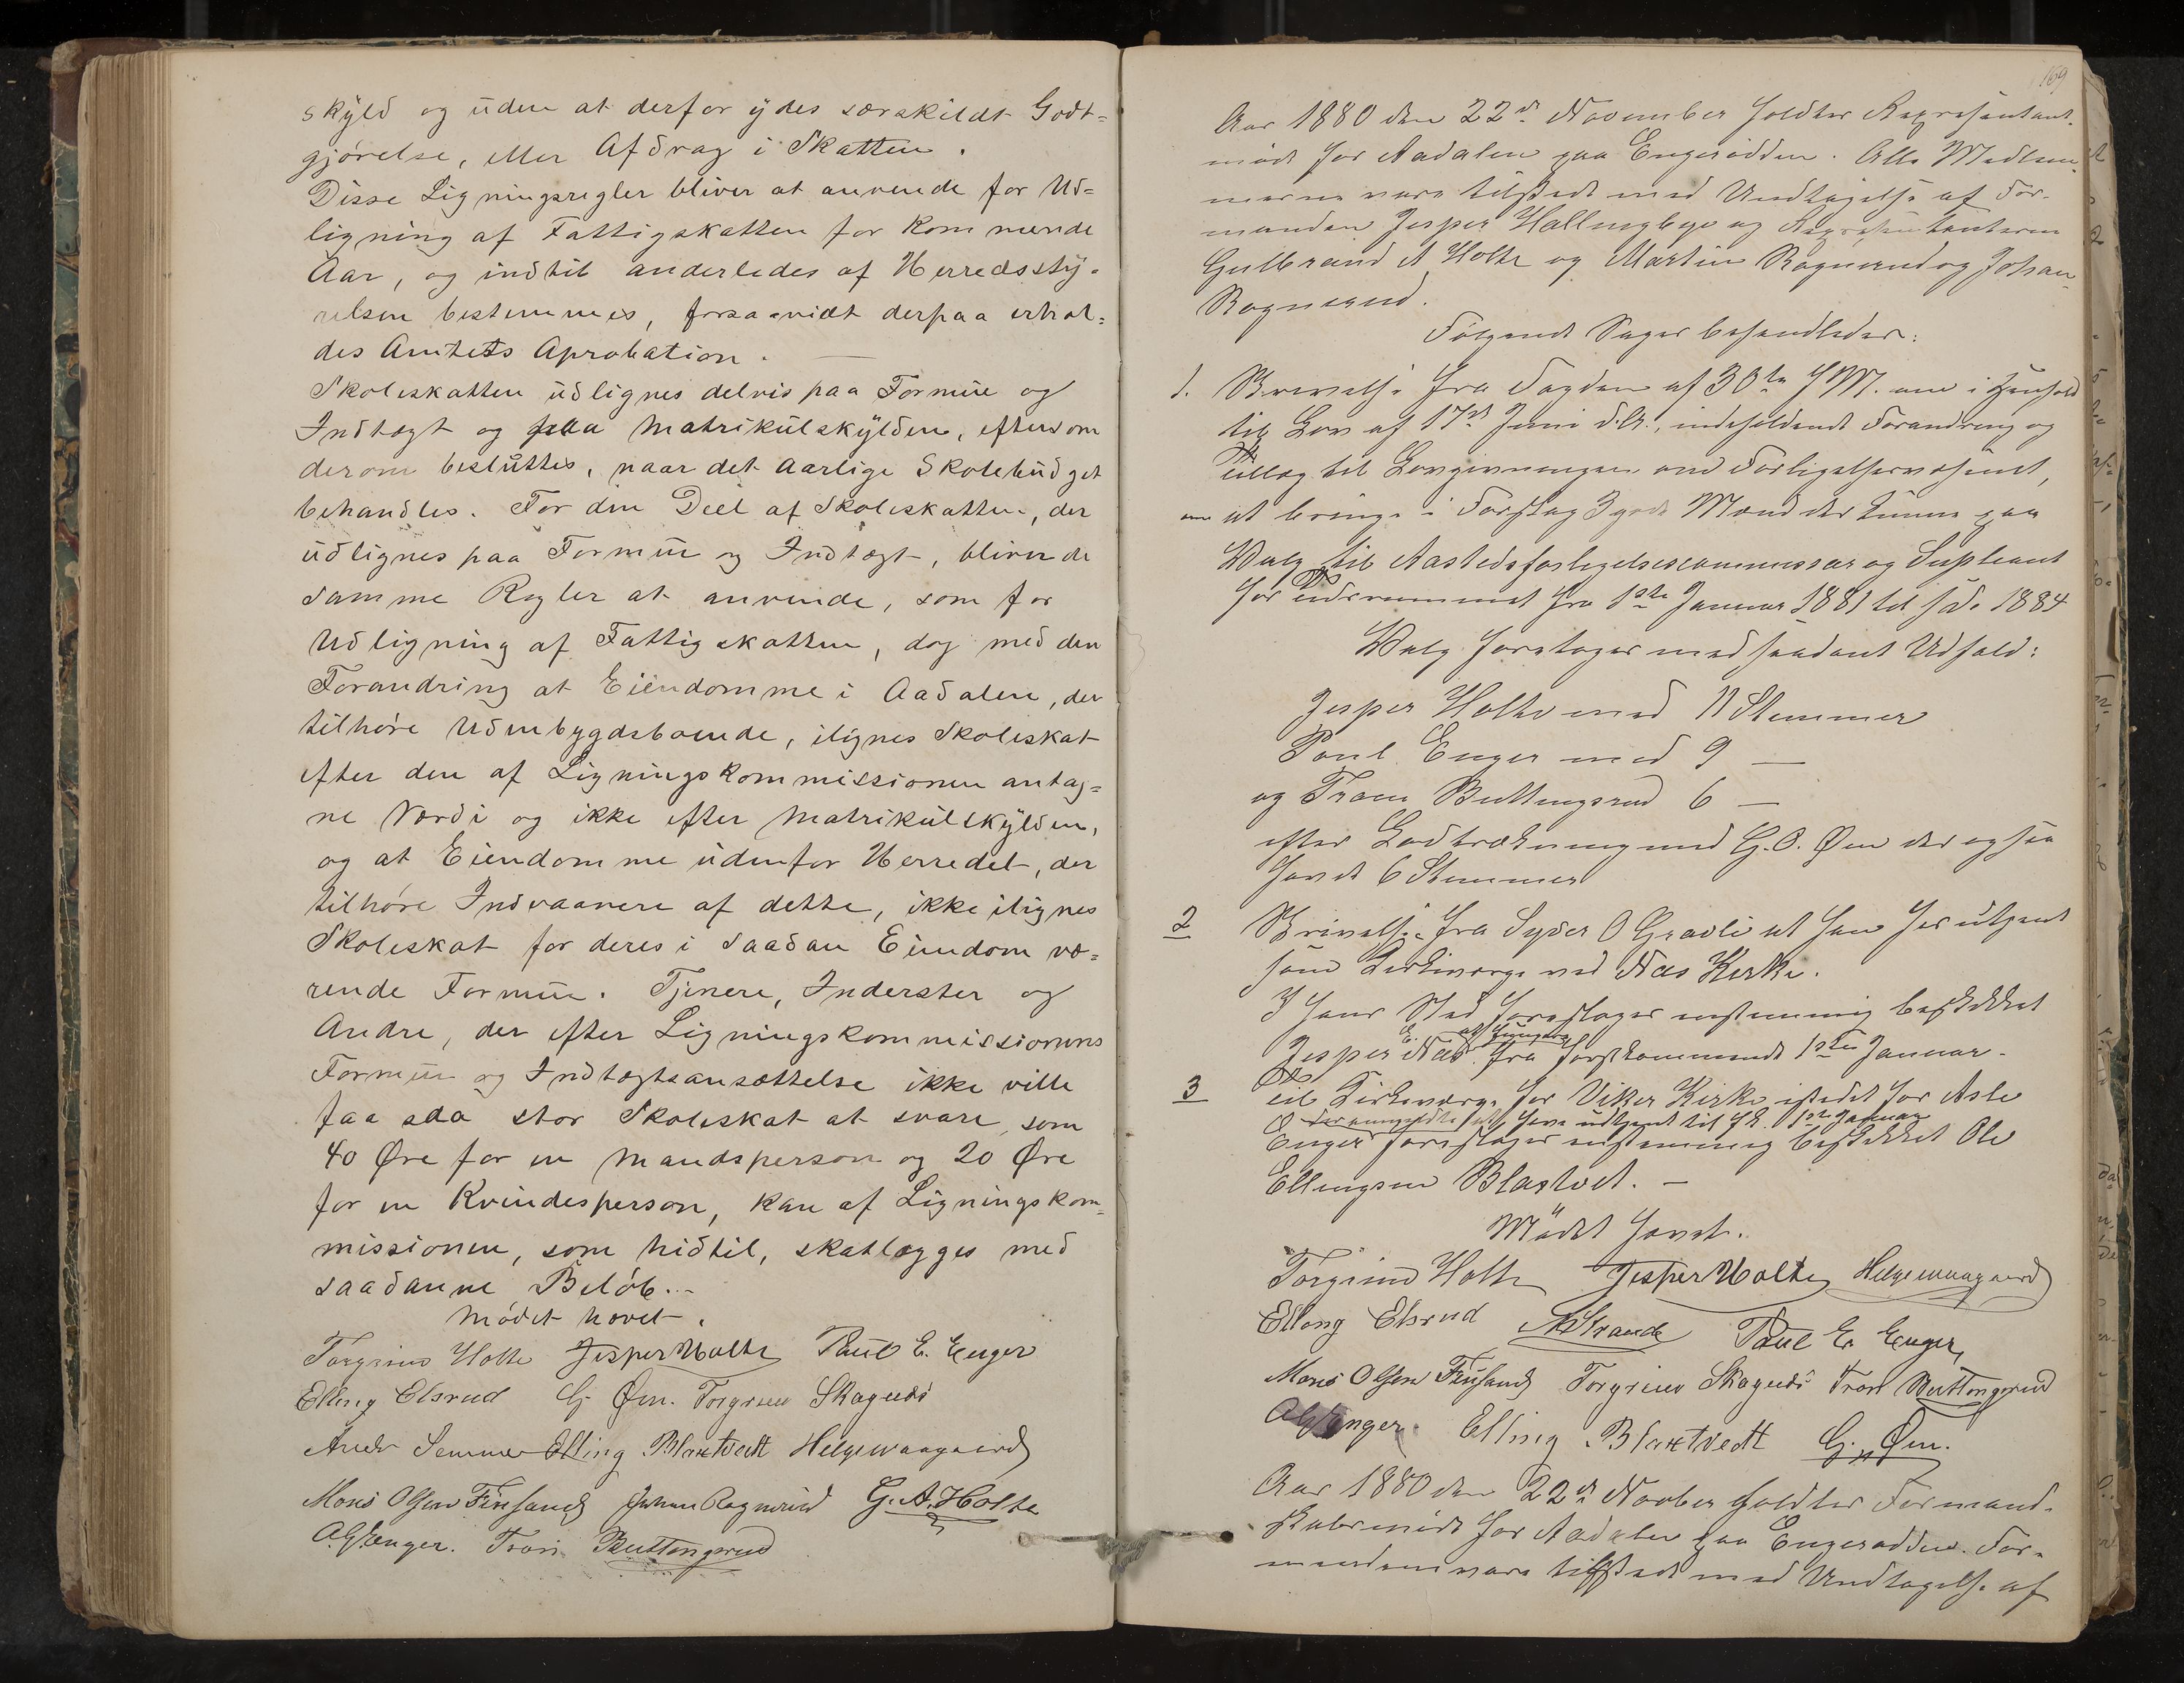 skyld og uden at derfor ydes særskildt Godt=
gjørelse, eller Afdrag i Skatten.
Disse Ligningsregler bliver at anvende for Ud=
ligning af Fattigskatten for kommende
Aar, og indtil anderledes af Herredssty=
relsen bestemmes, forsaavidt derpaa erhol=
des Amtets Aprobation. —
Skoleskatten udlignes delvis paa Formue og
Indtægt og paa Matrikulskylden, eftersom
derom besluttes, naar det aarlige Skolebudget
behandles. For den Deel af Skoleskatten, der
udlignes paa Formue og Indtægt, bliver de
samme Regler at anvende, som for
Udligning af Fattigskatten, dog med den
Forandring at Eiendomme i Aadalen, der
tilhøre Udenbygdsboende, ilignes Skoleskat
efter den af Ligningskommissionen antag=
ne Værdi og ikke efter Matrikulskylden,
og at Eiendomme udenfor Herredet, der
tilhøre Indvaanere af dette, ikke ilignes
Skoleskat for deres i saadan Eiendom væ=
rende Formue. Tjenere, Inderster og
Andre, der efter Ligningskommissionens
Formue og Indtægtsansættelse ikke ville
faa saa stor Skoleskat at svare, som
40 Øre for en Mandsperson og 20 Øre
for en Kvindesperson, kan af Ligningskom=
missionen, som hidtil, skatlægges med
saadanne Beløb. -
Mødet hævet.
Torgrim Holte Jesper Holte Paul E. Enger
Elling Elsrud G Øen. Torgrim Skagnæs
Andr Semmen Elling Blaxtvedt Helge Waagaard
Mons Olsen Finsand Johan Rognerud G. A. Holte
A. G. Enger. Tron Buttengsrud
169
Aar 1880 den 22de November holdtes Repræsentant-
møde for Aadalen paa Engerodden. Alle Medlem-
merne vare tilstede med Undtagelse af For-
manden Jesper Hallingbye og Repræsentanterne
Gulbrand A Holte og Martin Rognerud og Johan
Rognerud.
Følgende Sager behandledes:
1. Skrivelse fra Fogden af 30te f.M. om i Henhold
til Lov af 17de Juni d.A., indeholdende Forandring og
Tillæg til Lovgivningen om Forligelsesvæsenet,
om at bringe i Forslag 3 gode Mænd der kunne paa
Valg til Aastedsforligelsescommissær og Supleant
for Tidsrummet fra 1ste Januar 1881 til s.D. 1884
Valg foretoges med saadant Udfald:
Jesper Holte med 11 Stemmer
Paul Enger med 9 —
og Tron Buttingsrud 6 —
efter Lodtrækning med G. O. Øen der ogsaa
havde 6 Stemmer
2 Skrivelse fra Syver O Gravli at han har udtjent
som Kirkeværge ved Næs Kirke.
I hans Sted foreslages enstemmig beskikket
Jesper E. Næs fra førstkommende 1ste Januar.
3 Til Kirkeværge for Viker Kirke istedet for Asle
have udtjent til 1ste Januar
Enger foreslages enstemmig beskikket Ole
Ellingsen Blaxtvet. —
Mødet hævet.
Torgrim Holte Jesper Holte Helge Waagaard
Elling Elsrud A Strande Paul E. Enger,
Mons Olsen Finsand Torgrim Skagnæs Tron Buttengsrud
A G Enger. Elling Blaxtvedt G. Øen.
Aar 1880 den 22de Novber holdtes Formand-
skabsmøde for Aadalen paa Engerodden. For-
mændene vare tilstede med Undtagelse af